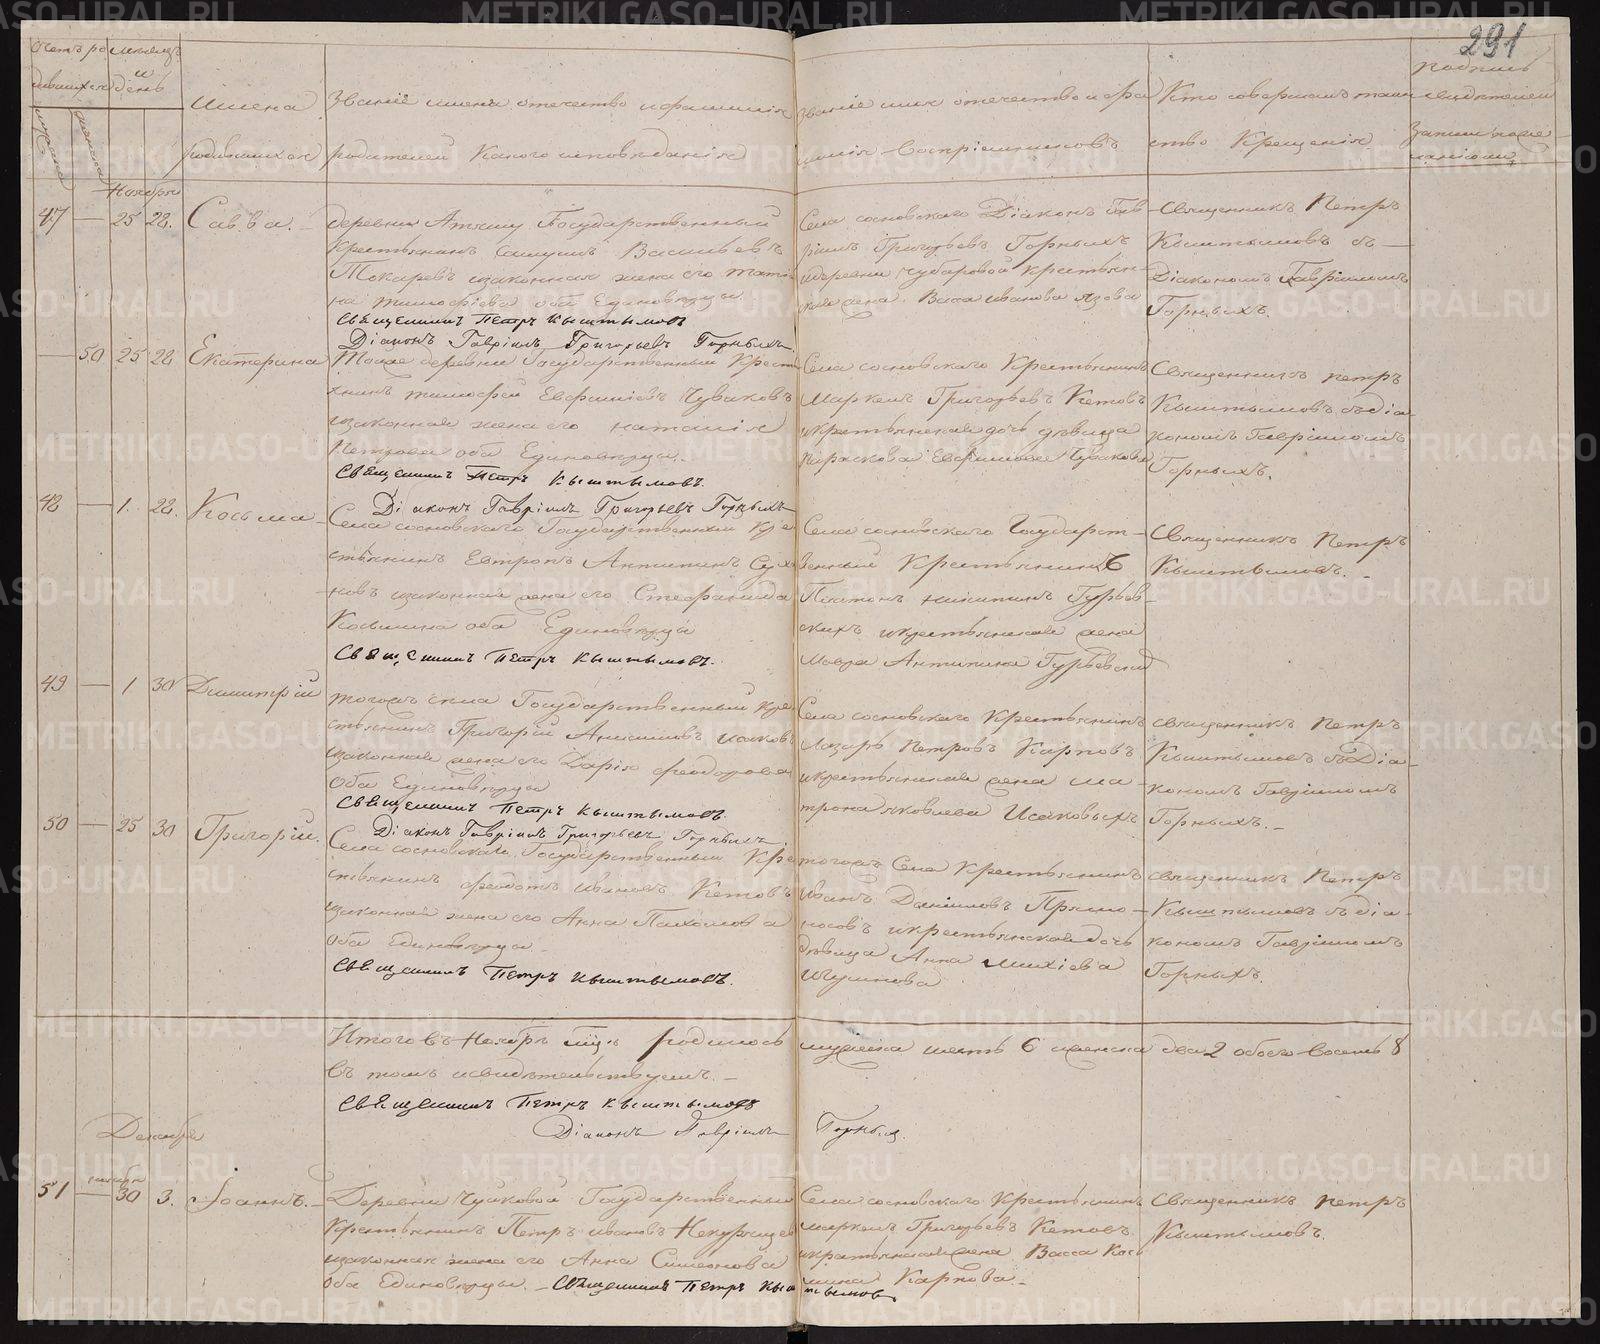 291
Счетъ ро
дившихся
мѣсяцъ
и
день
Имена
родившихся
Званіе имена отечество и фамилія
родителей какого исповѣданія
Званіе имя отечество и фа
милія воспріемниковъ
Кто совершалъ таин
ство Крещенія
подпись
свидѣтелей
записи
Ноября
47 — 25 28. Савва.
деревни Государственный
Крестьянинъ Васильевъ
Токаревъ и законная жена его Татія
на Тимофѣева оба Единовѣрцы
Священникъ Петръ Кыштымовъ
Діаконъ Гавріилъ Григорьевъ Горныхъ
Села сосновскаго Діаконъ Гав
ріилъ Григорьевъ Горныхъ
и деревни Чубаровой крестьян
ская жена Васса Иванова Язова
Священникъ Петръ
Кыштымовъ съ
Діакономъ Гавріиломъ
Горныхъ.
— 50 25 28 Екатерина
Тойже деревни Государственный Крест
янинъ Тимофей Евфиміевъ Чуваковъ
и законная жена его Наталія
Петрова оба Единовѣрцы.
Священникъ Петръ Кыштымовъ.
Діаконъ Гавріилъ Григорьевъ Горныхъ
Села сосновскаго Крестьянинъ
Маркелъ Григорьевъ Кетовъ
и крестьянская дочь дѣвица
Параскова Евфимова Чувакова
Священникъ Петръ
Кыштымовъ съ Діа
кономъ Гавріиломъ
Горныхъ.
48 — 1. 28. Косьма
Села сосновскаго Государственный Кре
стьянинъ Евтропъ Антипинъ
новъ и законная жена его Стефанида
Косьмина оба Единовѣрцы
Священникъ Петръ Кыштымовъ.
Села сосновскаго Государст
венный Крестьянинъ
Платонъ Никитинъ Гурьев
скихъ и крестьянская жена
Мавра Антипина Гурьевских
Священникъ Петръ
Кыштымовъ.
49 — 1 30 Димитрій
тогожъ села Государственный Кре
стьянинъ Григорій Анисимовъ Исаковъ
и законная жена его Дарія Феодорова
Оба Единовѣрцы
Священникъ Петръ Кыштымовъ.
Діаконъ Гавріилъ Григорьевъ Горныхъ.
Села сосновскаго Крестьянинъ
Лазарь Петровъ Карповъ
и крестьянская жена Ма
трона Яковлева Исаковыхъ
священникъ Петръ
Кыштымовъ съ Діа
кономъ Гавріиломъ
Горныхъ.
50 — 25 30 Григорій.
Села сосновскаго Государственный Кре
стьянинъ Федотъ Ивановъ Кетовъ
и законная жена его Анна Пахомова
Оба Единовѣрцы
Священникъ Петръ Кыштымовъ.
тогожъ Села Крестьянинъ
Иванъ Даниловъ Прямо
носовъ и крестьянская дочь
дѣвица Анна Михіева
Шушнова
священникъ Петръ
Кыштымовъ съ діа
кономъ Гавріиломъ
Горныхъ.
Итого въ Ноябрѣ мцѣ родилось мужеска шесть 6 женска два 2 обоего восемь 8
въ томъ и свидѣтельствуемъ.
Священникъ Петръ Кыштымовъ
Діаконъ Гавріилъ Горных.
Декабрь
ноября
51 — 30 3. Іоаннъ.
Деревни Чуйковой Государственный
Крестьянинъ Петръ Ивановъ Некурящев
и законная жена его Анна Симеонова
Оба Единовѣрцы. Священникъ Петръ Кыштымовъ
Села сосновскаго Крестьянинъ
Маркелъ Григорьевъ Кетовъ
и крестьянская жена Васса Кось
мина Карпова
Священникъ Петръ
Кыштымовъ.
METRIKI.GASO-URAL.RU